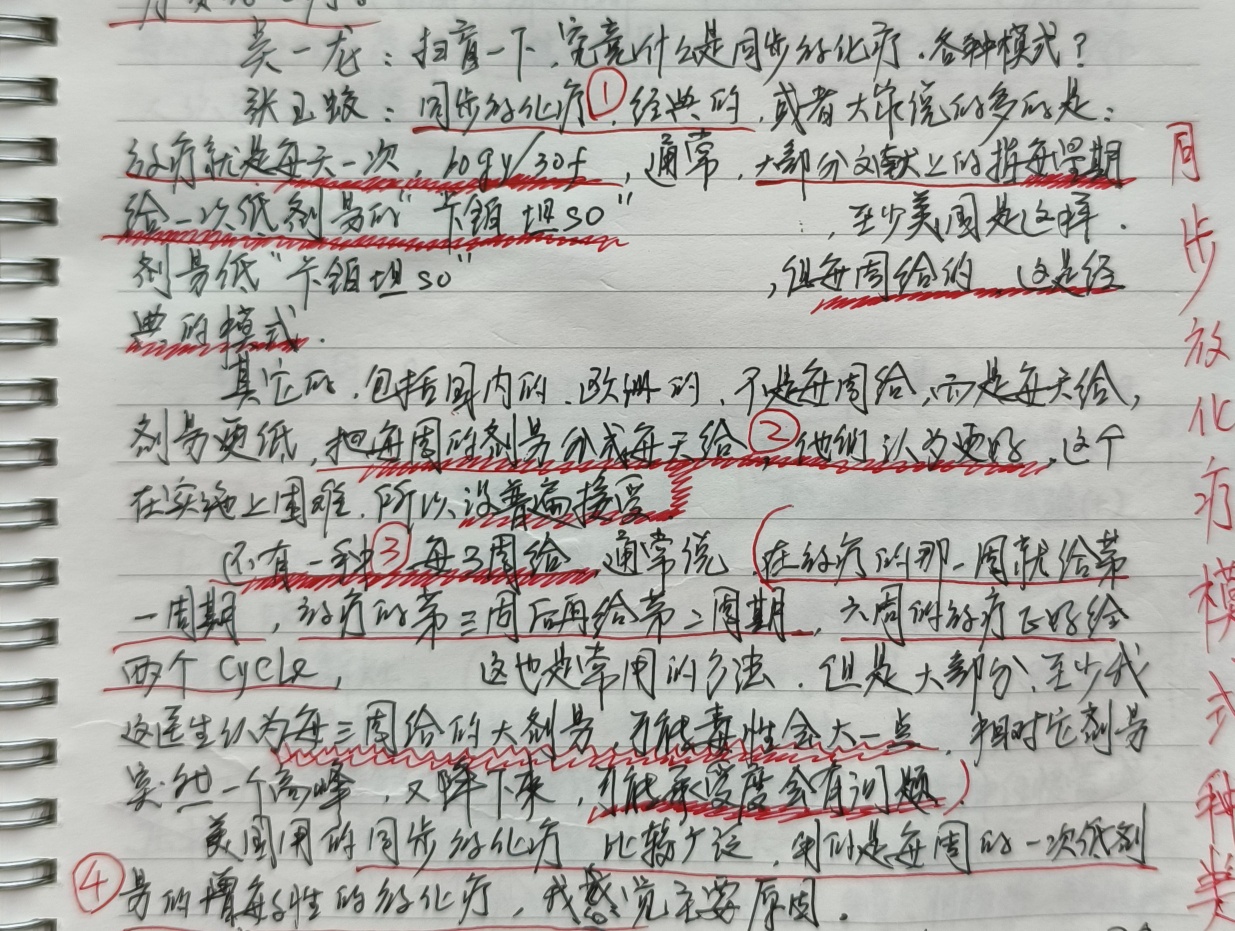 吴一龙：扫盲一下，究竟什么是同步放化疗，各种模式？
张玉蛟：同步放化疗①，经典的，或者大家说的多的是：
放疗就是每天一次，60gy/30f，通常，大部分文献上的指每星期
给一次低剂量的"卡铂 坦50"，至少美国是这样．
剂量低"卡铂 坦50"，但每周给的 这是经
典的模式．
其它的，包括国内的、欧州的，不是每周给，而是每天给，
剂量更低，把每周的剂量分成每天给②，他们认为更好，这个
在实施上困难，所以没普遍接受．
还有一种③每3周给 通常说（在放疗的那一周就给第
一周期，放疗的第三周后再给第二周期，六周的放疗正好给
两个cycle， 这也是常用的方法．但是大部分、至少我
这医生认为每三周给的大剂量 可能毒性会大一点，相对它剂量
突然一个高峰，又降下来，可能承受度会有问题）
美国用的同步放化疗 比较广泛，用的是每周的一次低剂
④量的增敏性的放化疗，我感觉主要原因．
同步放化疗模式种类